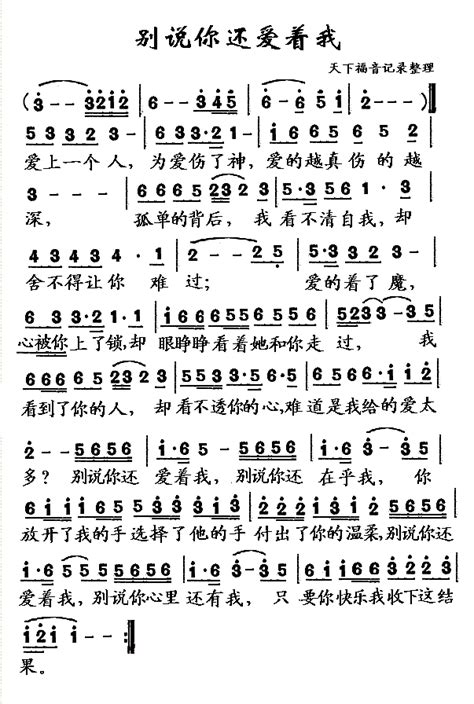 别说你还爱着我
天下福音记录整理
(3 - - 3212 | 6 - - 345 | 6 - 6 51 | 2 - - - )
533 3 3· | 6 33 3·2 1 - | 1 66 5 6 5 2
爱上一个人，为爱伤了神，爱的越真伤的越
3 - - - | 6 6 6 5 23 3 | 5·3 5 5 6 1·3
深，孤单的背后，我看不清自我，却
4 3 4 3 4·1 | 2 - - 2 5 | 5·3 3 3 2·
舍不得让你难过；爱的着了魔，
6 33 3·2 1·1 | i 666 5556 | 5233 - 35
心被你上了锁，却眼睁睁看着她和你走过，我
666 6 5 23 3 | 5 5 3 3·5 6·5 | 6 5 6 6·i i 2
看到了你的人，却看不透你的心，难道是我给的爱太
2 - - 5656 | i·6 5 - 5656 | i·6 3 - 3 5
多？别说你还爱着我，别说你还在乎我，你
6 i i i 6 5 5 3 3 3 i 3 | 2 2 2 i 3 i 2 5656
放开了我的手选择了他的手付出了你的温柔，别说你还
i·6 5 5 5 5656 | i·6 3 - 3 5 | 6 i i 6 6 3 3 2 2 3
爱着我，别说你心里还有我，只要你快乐我收下这结
i 2 i i - - :‖
果。